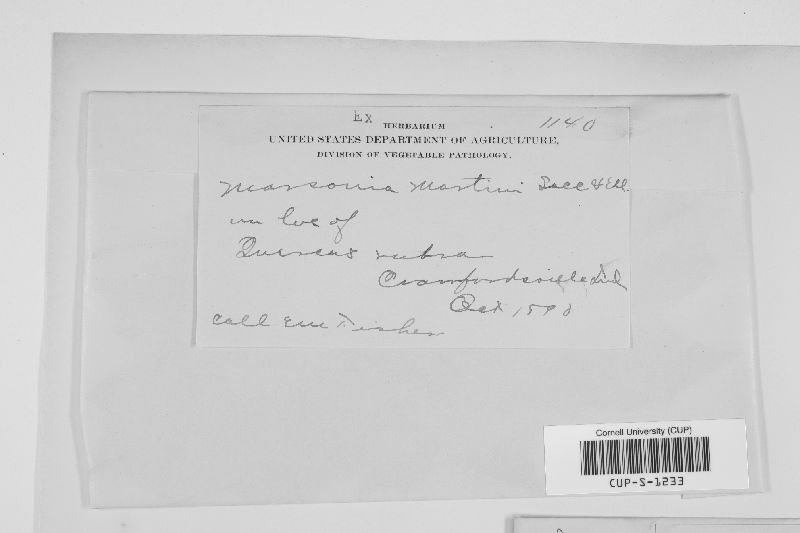 Ex 1140
HERBARIUM
UNITED STATES DEPARTMENT OF AGRICULTURE,
DIVISION OF VEGETABLE PATHOLOGY.
Marsonia Martini Sacc & Ell.
on lvs of
Quercus rubra
Crawfordsville Ind
Oct 1890
Coll E M Fisher
Cornell University (CUP)
CUP-S-1233